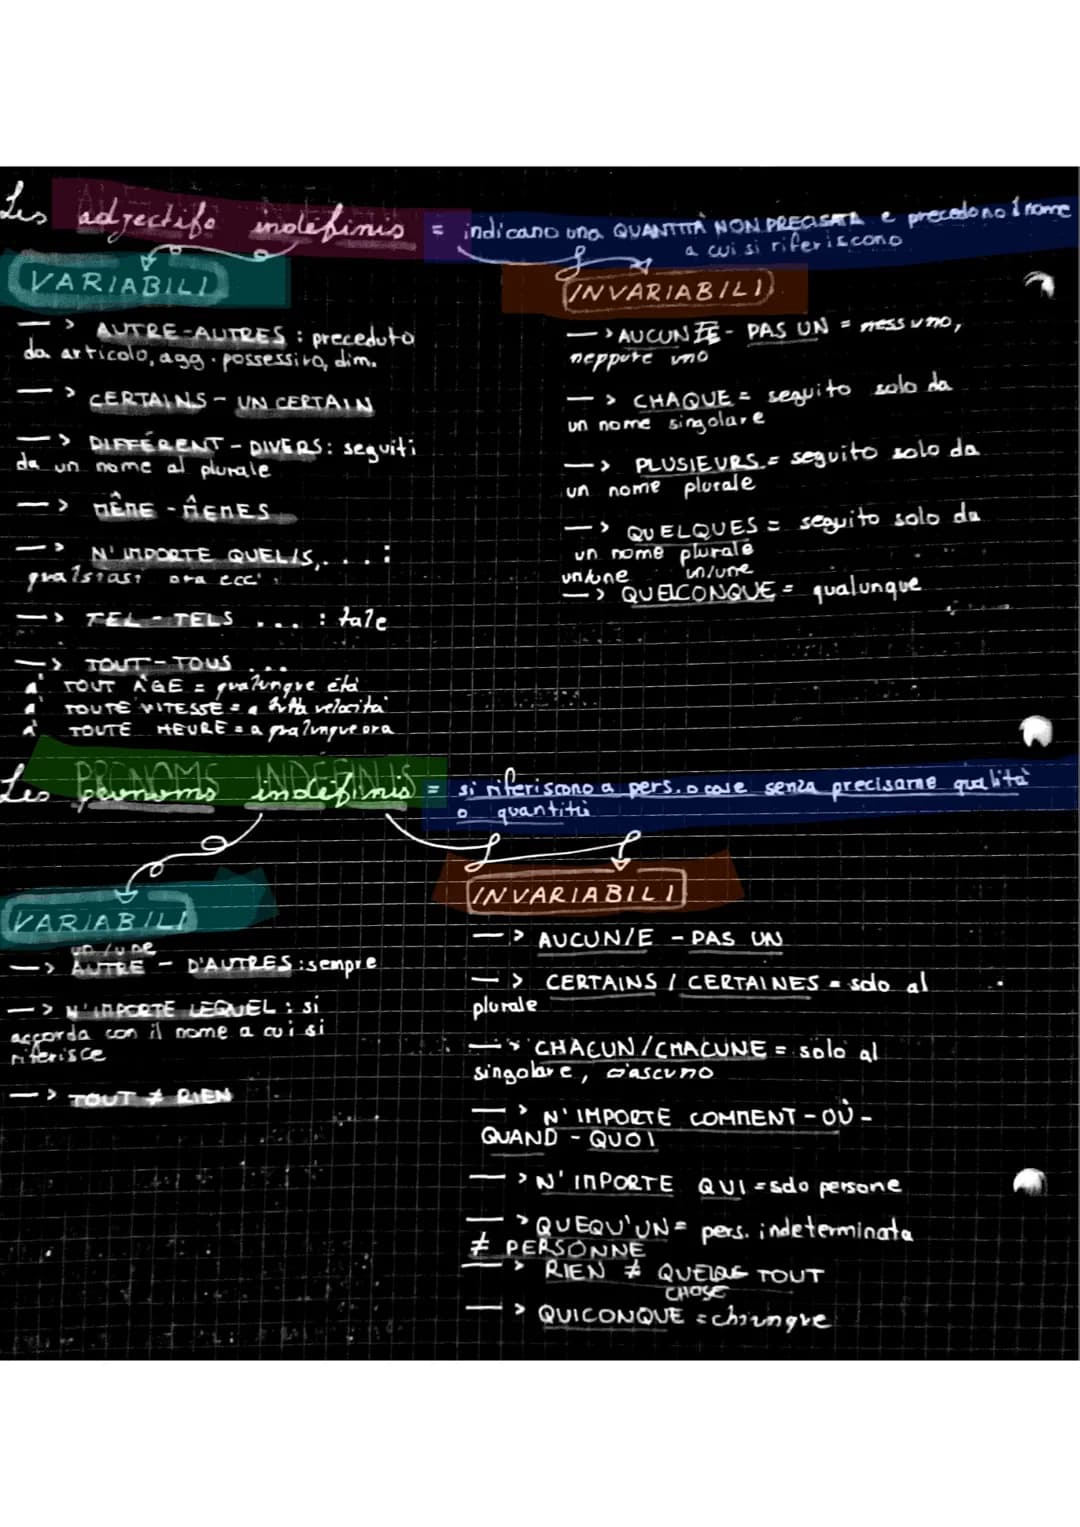 Les adjectifs indéfinis = indicano una QUANTITÀ NON PRECISATA e precedono il nome
a cui si riferiscono
VARIABILI
—> AUTRE-AUTRES : preceduto
da articolo, agg. possessivo, dim.
—> CERTAINS - UN CERTAIN
—> DIFFÉRENT - DIVERS: seguiti
da un nome al plurale
—> MÊME - MÊMES
—> N'IMPORTE QUEL/S, ... :
qualsiasi ora ecc.
—> TEL - TELS ... : tale
—> TOUT - TOUS ...
à TOUT ÂGE = qualunque età
à TOUTE VITESSE = a tutta velocità
à TOUTE HEURE = a qualunque ora
INVARIABILI
—> AUCUN/E - PAS UN = nessuno,
neppure uno
—> CHAQUE = seguito solo da
un nome singolare
—> PLUSIEURS = seguito solo da
un nome plurale
—> QUELQUES = seguito solo da
un nome plurale
un/une un/une
—> QUELCONQUE = qualunque
PRONOMS INDÉFINIS
Les pronoms indéfinis = si riferiscono a pers. o cose senza precisarne qualità
o quantità
VARIABILI
un/une
—> AUTRE - D'AUTRES : sempre
—> N'IMPORTE LEQUEL : si
accorda con il nome a cui si
riferisce
—> TOUT ≠ RIEN
INVARIABILI
—> AUCUN/E - PAS UN
—> CERTAINS / CERTAINES = solo al
plurale
—> CHACUN/CHACUNE = solo al
singolare, ciascuno
—> N'IMPORTE COMMENT - OÙ -
QUAND - QUOI
—> N'IMPORTE QUI = solo persone
—> QUEQU'UN = pers. indeterminata
≠ PERSONNE
—> RIEN ≠ QUELQUE TOUT
CHOSE
—> QUICONQUE = chiunque